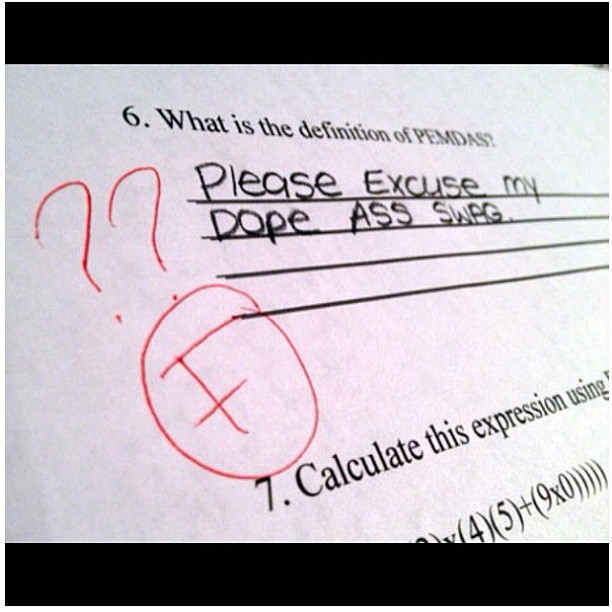 6. What is the definition of PEMDAS?
??
Please Excuse my
Dope ASS SWAG.
F
7. Calculate this expression using
x(4)(5)+(9x0)))))